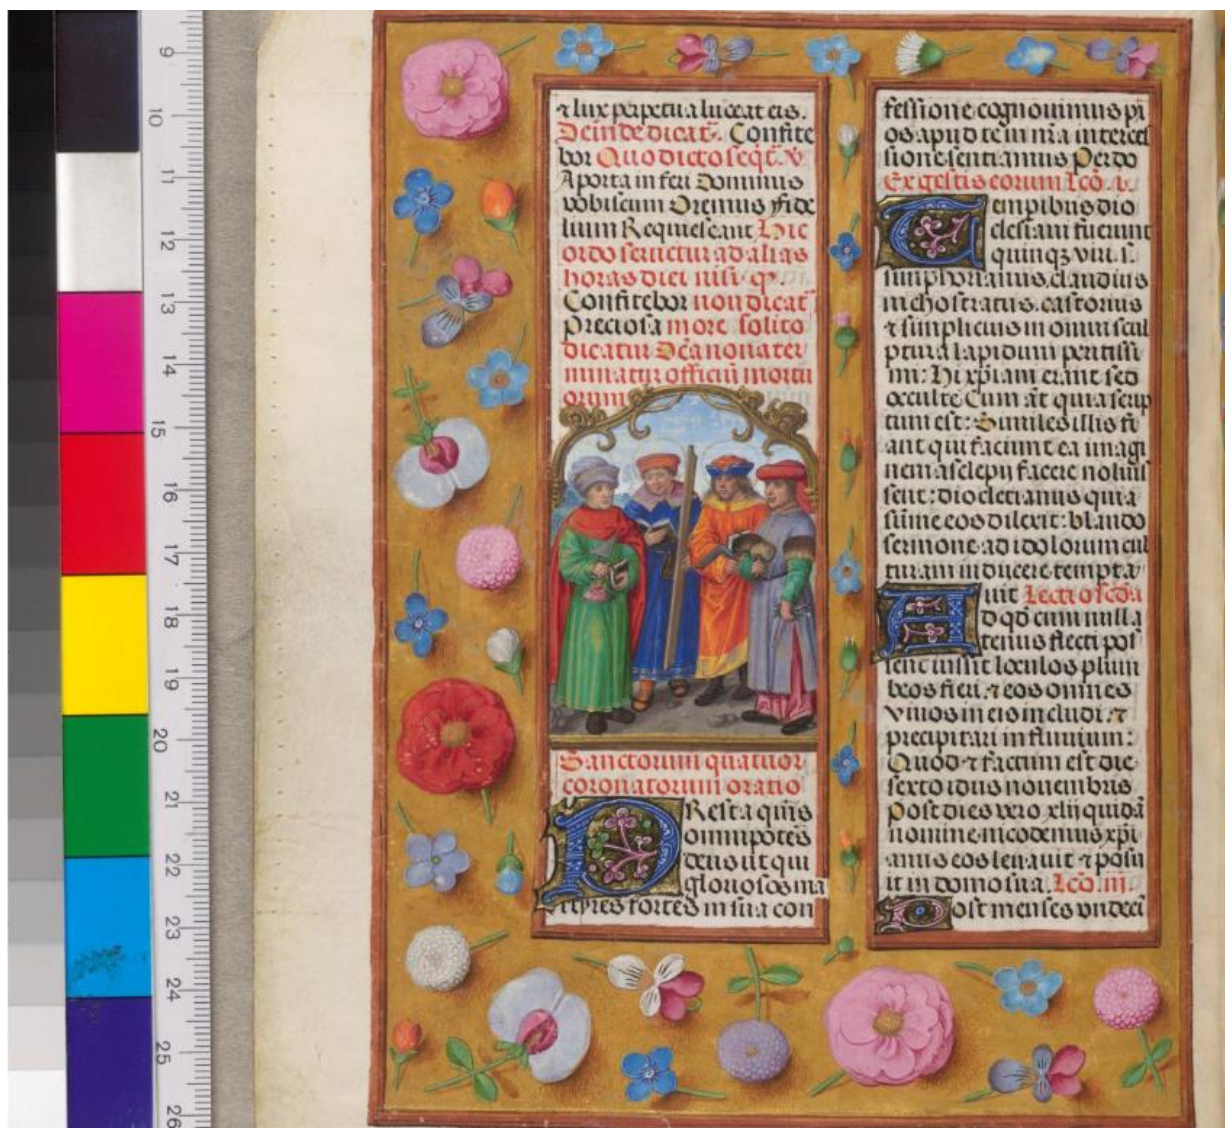 9
10
11
12
13
14
15
16
17
18
19
20
21
22
23
24
25
26
⁊ lux perpetua luceat eis.
Deinde dicat̃. Confite
bor Quo dicto seqt̃. v̕
A porta inferi Dominus
vobiscum Oremus fide
lium Requiescant Hic
ordo seruetur ad alias
horas diei nisi q̃
Confitebor non dicat̃
Preciosa more solito
dicatur nona ter
minatur officiũ mortu
orum
Sanctorum quatuor
coronatorum oratio
PResta qũis
omnipotẽs
deus ut qui
gloriosos ma
rtyres fortes in sua con
fessione cognouimus pi
os apud te in nr̃a interces
sione sentiamus Per do
Ex gestis eorum lcõ. i.
Tempibus dio
cletiani fuerunt
quinqꝫ viri .s.
simphorianus. claudius
nichostratus. castorius
⁊ simplicius in omni scul
ptura lapidum peritissi
mi: Hi xp̃iani erant sed
occulte Cum at̃ quia scrip
tum est: Similes illis fi
ant qui faciunt ea imagi
nem asclepii facere noluis
sent: dioclecianus quia
sũme eos dilexit: blando
sermone ad idolorum cul
turam inducere tempta
uit Lectio scd̃a
Ad qd̃ cum nulla
tenus flecti pos
sent iussit loculos plum
beos fieri. ⁊ eos omnes
viuos in eis includi. ⁊
precipitari in fluuium:
Quod ⁊ factum est die
sexto idus nouembris
Post dies vero xlij quidã
nomine nicodemus xp̃i
anus eos leuauit ⁊ posu
it in domo sua. Lcõ. iii.
Post menses vndeci